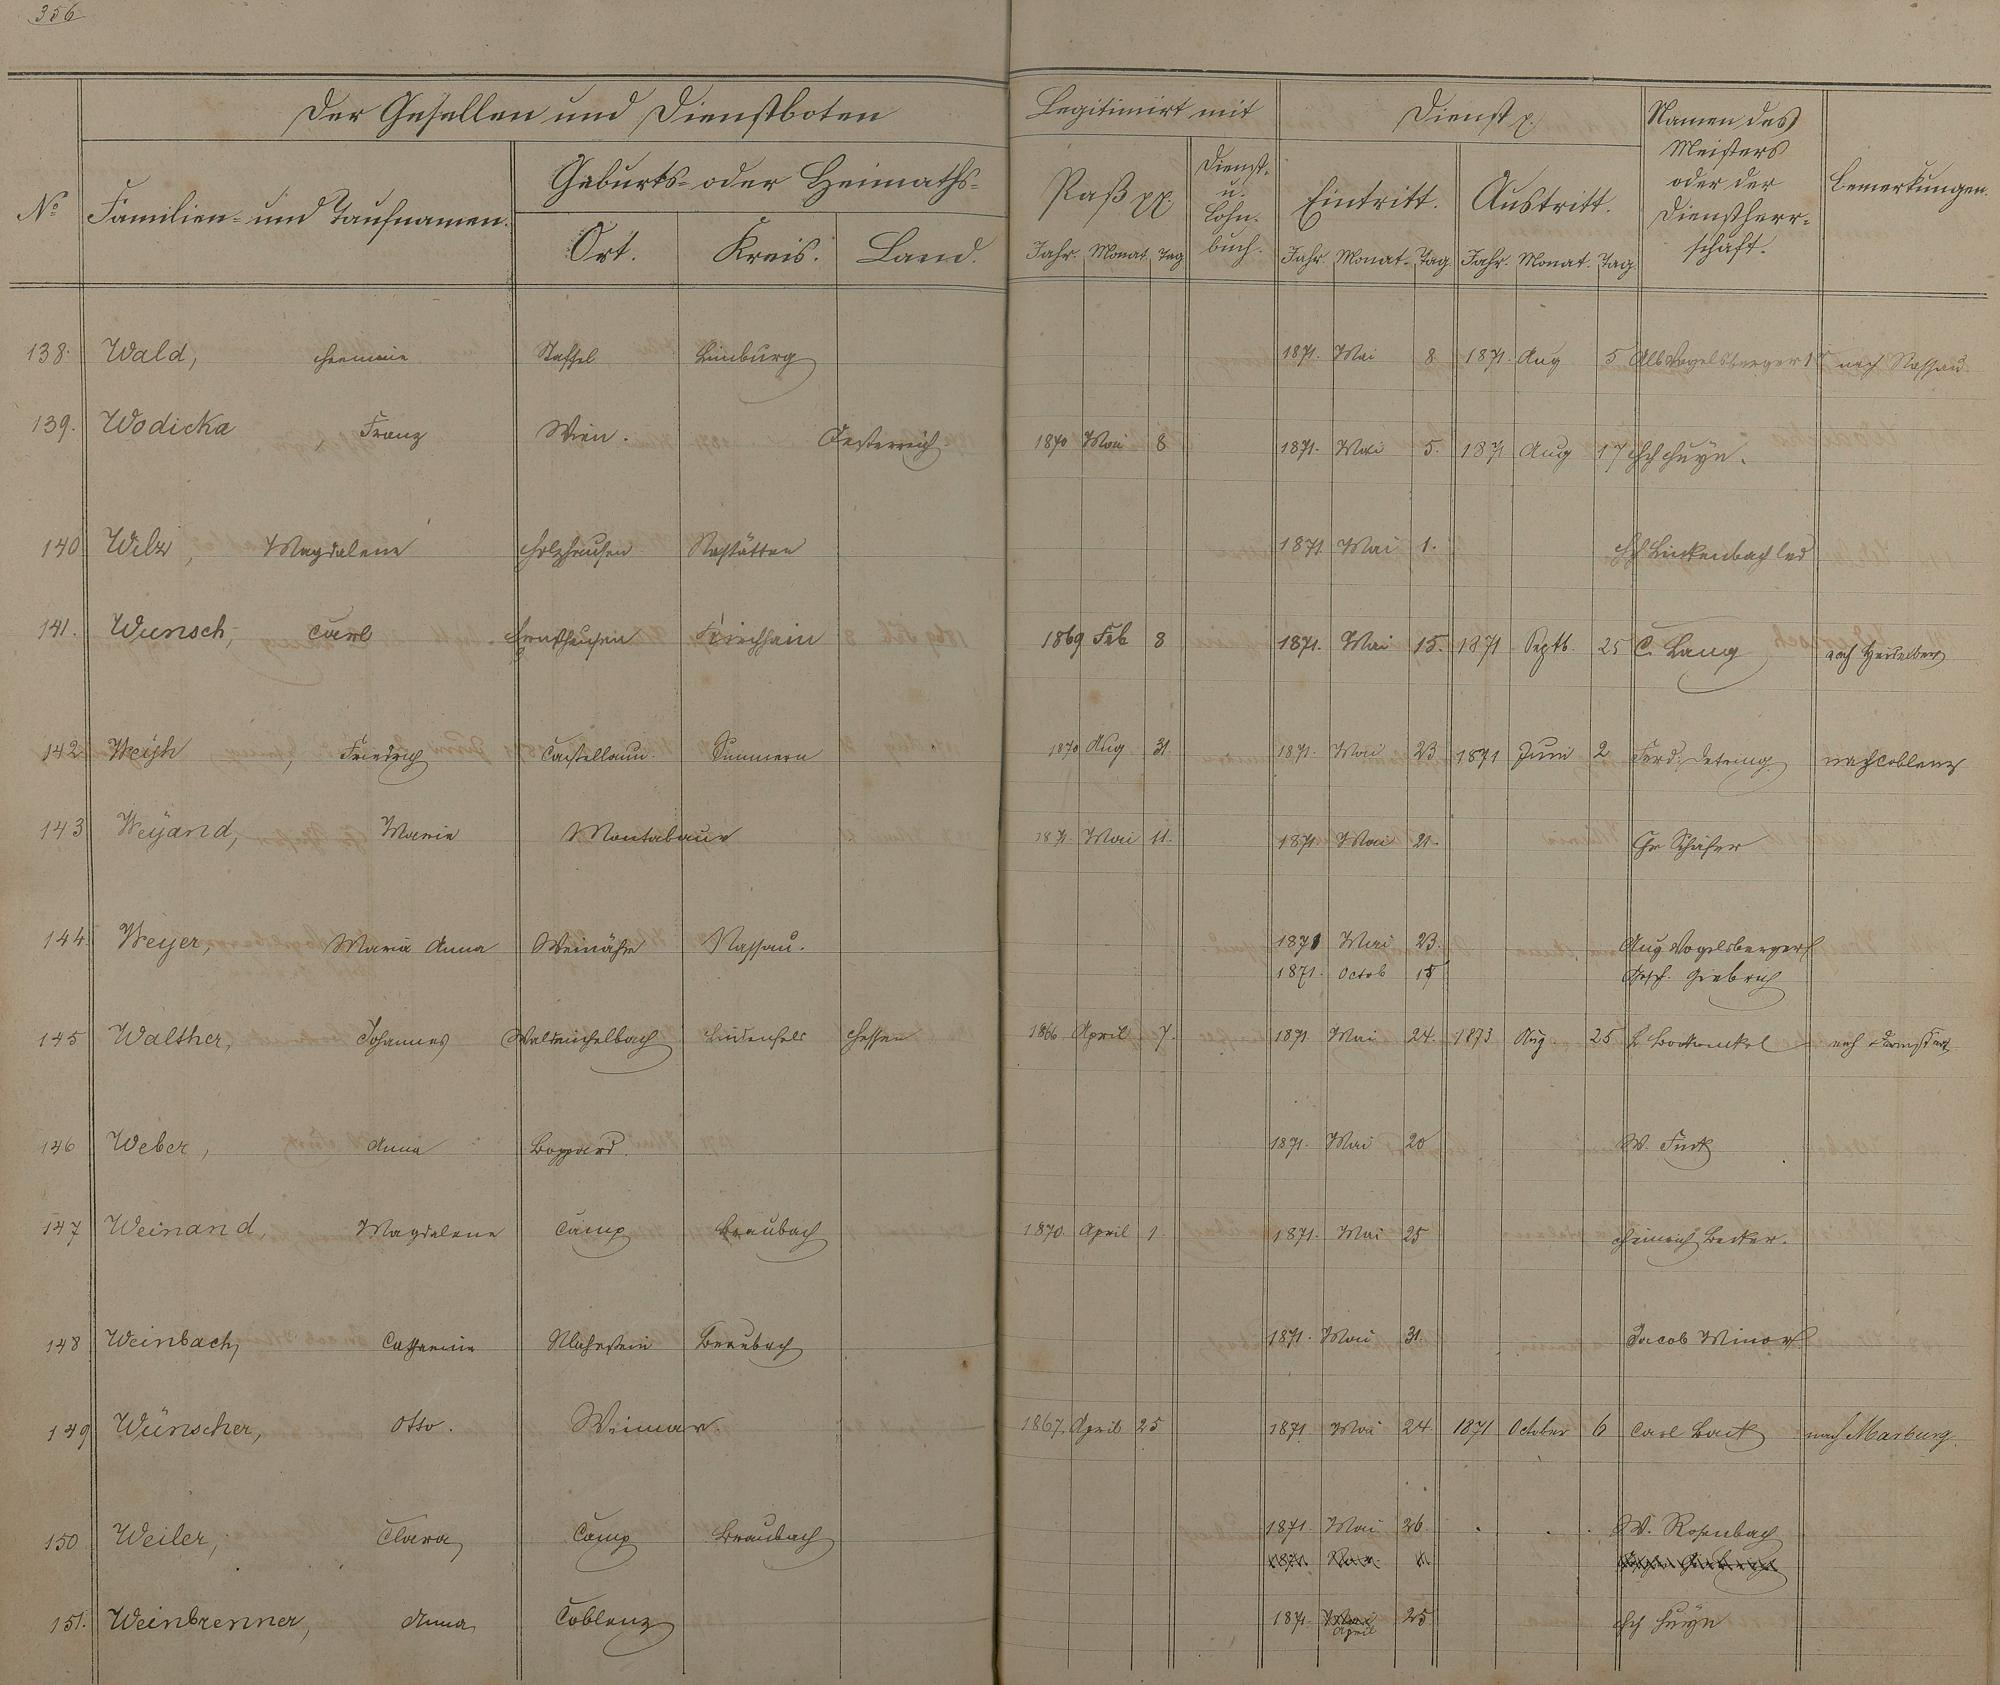 356
Der Gesellen und Dienstboten
Legitimirt mit
Dienst p.
Namen des Meisters oder der Dienstherrschaft.
Bemerkungen.
No
Familien- und Taufnamen.
Geburts- oder Heimaths-
Ort. Kreis. Land.
Paß pp.
Dienst- u. Lohn-buch.
Eintritt. Austritt.
Jahr. Monat. Tag Jahr Monat. Tag. Jahr. Monat. Tag.
138. Wald, Staffel Limburg 1871. Mai 8 1871. Aug 5 Alb Vogelsberger nach Nassau
139. Wodicka, Franz Wien. Oesterreich 1870 Mai 8 1871. Mai 5. 1871 Aug 17
140 Magdalene Holzhausen Nastätten 1871 Mai 1.
141. Wunsch, Carl Ernsthausen Kirchhain 1869 Feb 8 1871. Mai 15. 1871 Septb. 25 C. Lang nach Heidelberg
142 Friedrich Castellaun. Simmern 1870 Aug 31 1871. Mai 23 1871 Juni 2 Ferd. Detring nach Coblenz
143 Weyand, Maria Montabaur 1871. Mai 11. 1871 Mai 21. Schäfer
144. Weyer, Maria Anna Weinähr Nassau. 1871 Mai 23. Aug Vogelsberger
1871. Octob 15
145 Walther, Johannes Waldmichelbach Lindenfels Hessen 1866 April 7. 1871 Mai 24. 1873 Aug. 25 nach Darmstadt
146 Weber, Anna Boppard. 1871. Mai 20 W.
147 Weinand, Magdalene Camp Braubach 1870. April 1 1871. Mai 25 Heinrich Becker.
148 Weinbach, Catharina Braubach 1871. Mai 31. Jacob Minor
149 Wünscher, Otto. Weimar. 1867. April 25 1871 Mai 24. 1871 October 6 Carl nach Marburg.
150 Weiler, Clara Camp Braubach 1871. Mai 26. W. Rosenbach
151. Weinbrenner, Anna Coblenz 1871. Mai 25.
April